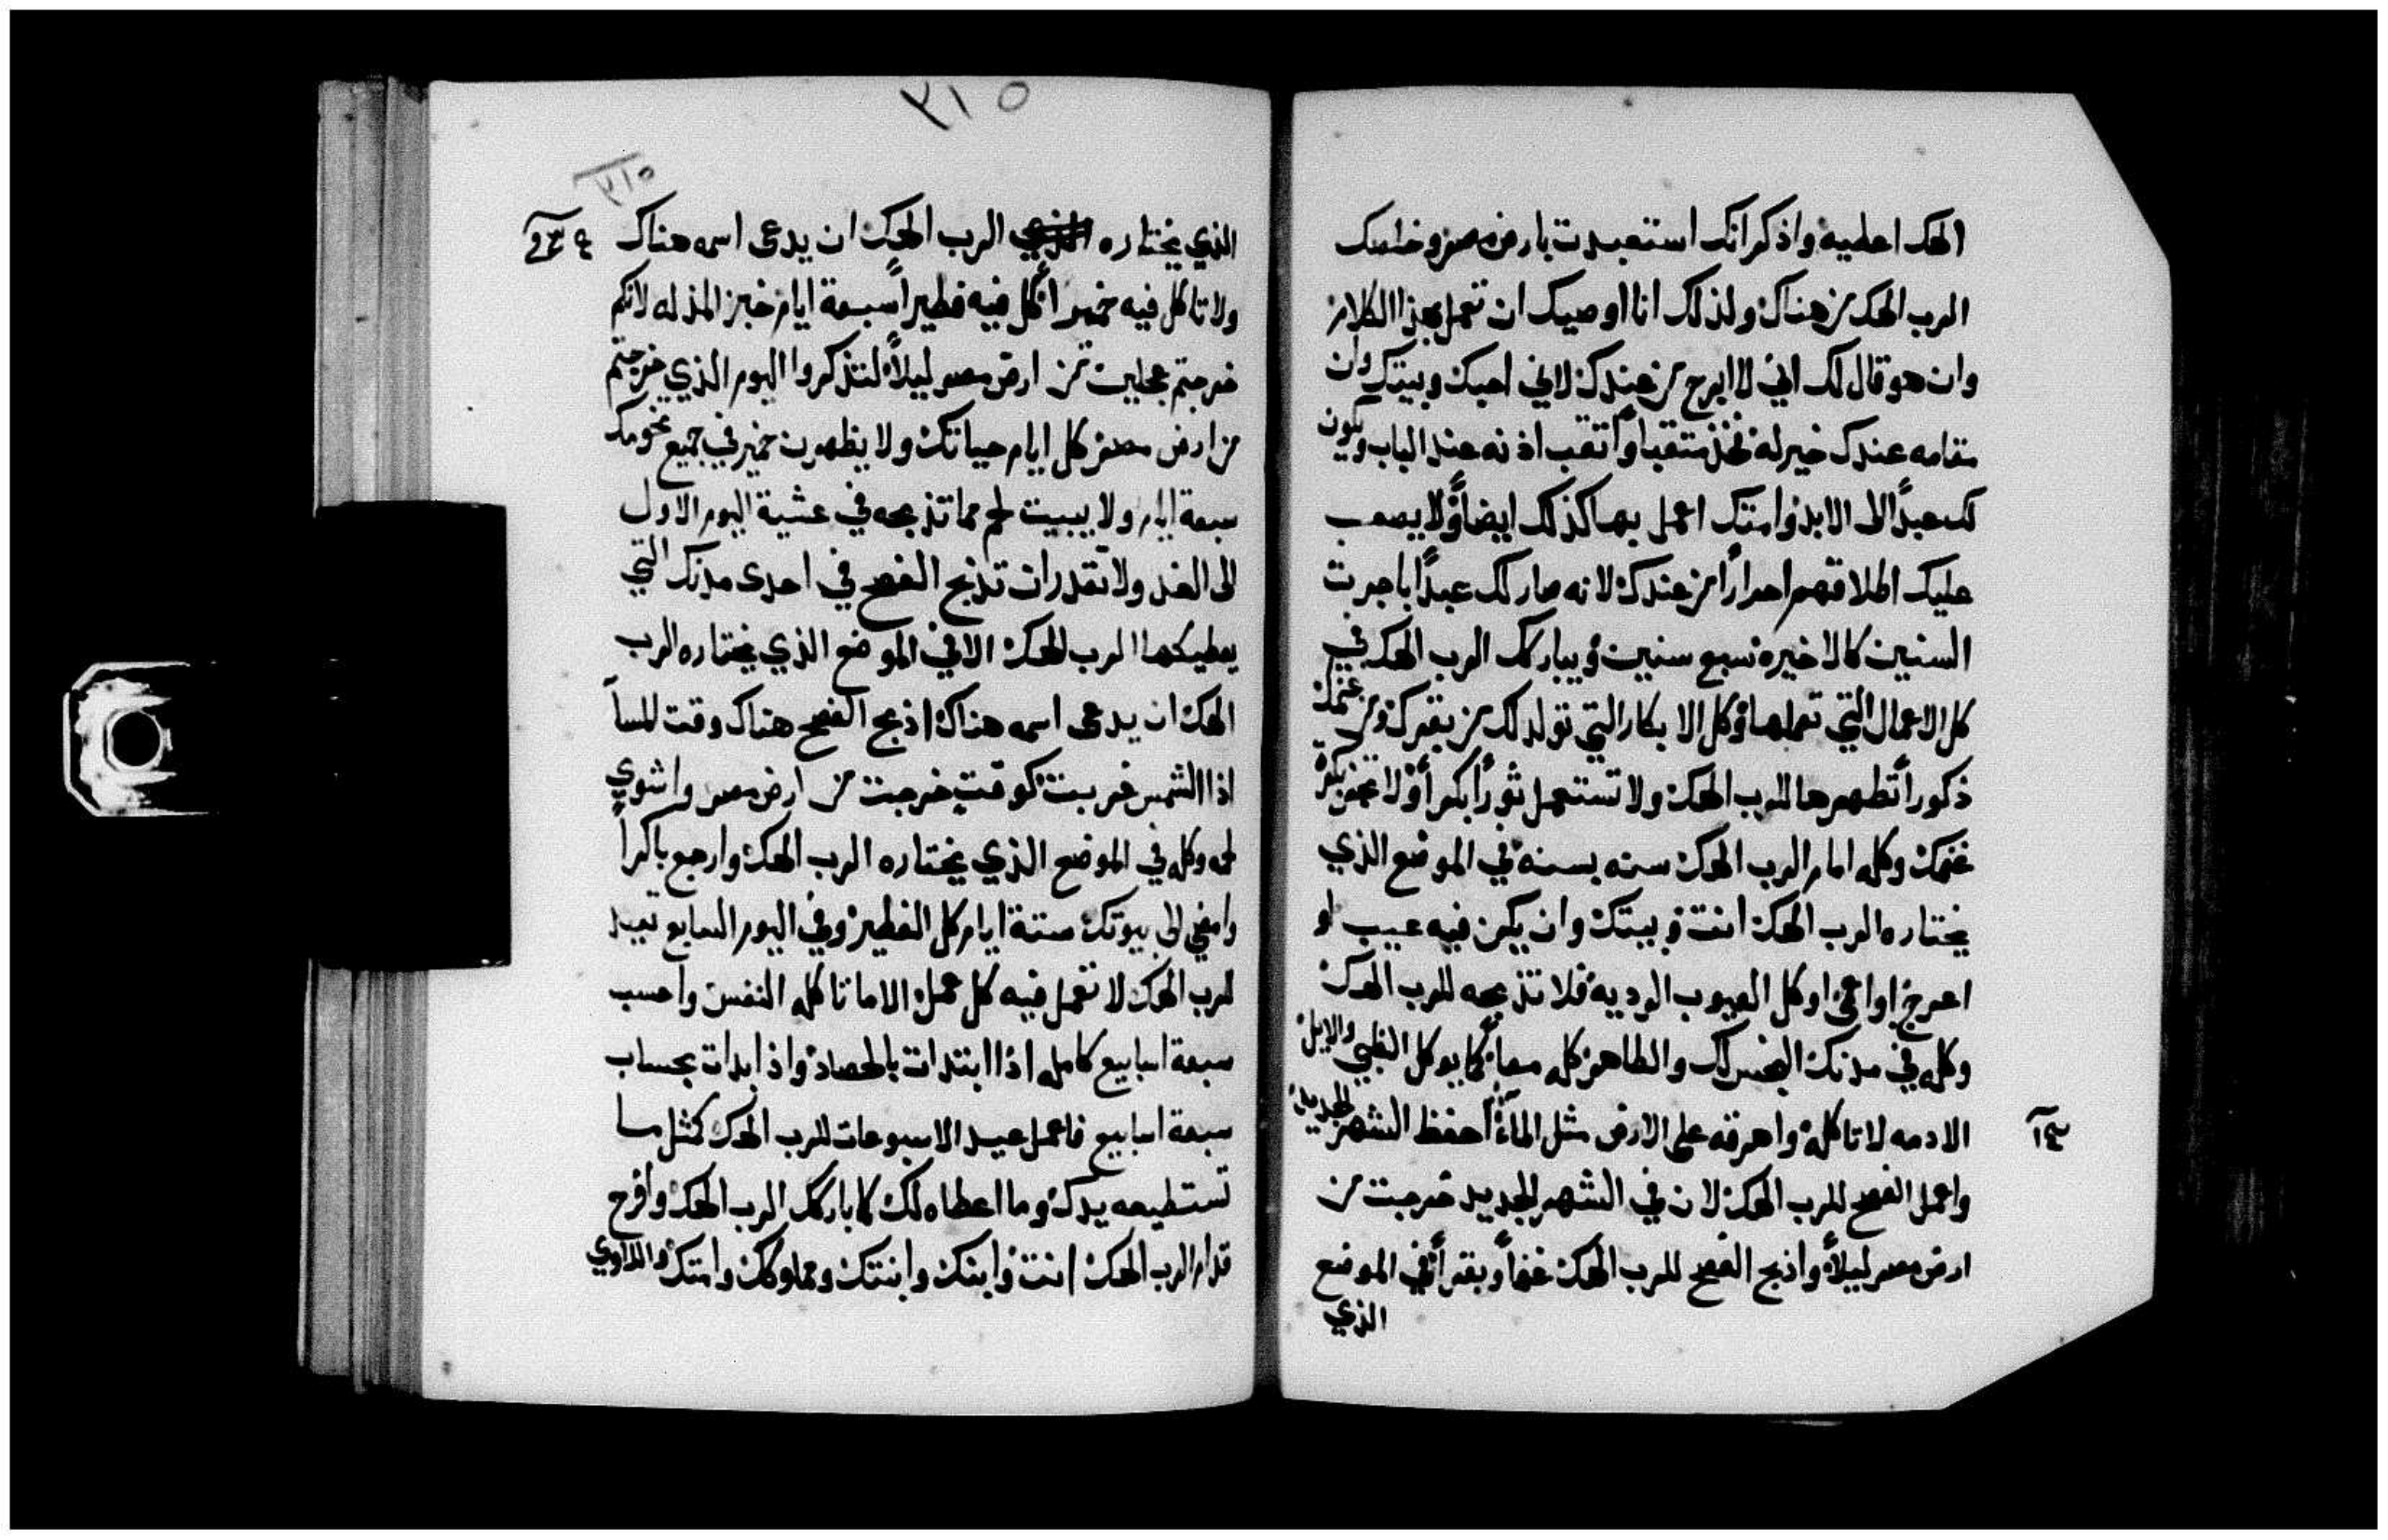 الهك اعطيه واذكر انك استعبدت بارض مصر وخلصك
الرب الهك من هناك ولذلك انا اوصيك ان تعمل بهذا الكلام
وان هو قال لك اني لا ابرح من عندك لاني احبك وبيتك وان
مقامه عندك خير له فخذ متقبا واتقب اذنه عند الباب ويكون
لك عبدًا الى الابد وامتك اعمل بها كذلك ايضاً ولا يصعب
عليك اطلاقهم احرارًا من عندك لانه صار لك عبدًا باجرت
السنين كالاخيره سبع سنين ويباركك الرب الهك في
كل الاعمال التي تعملها وكل الابكار التي تولد لك من بقرك ومن غنمك
ذكوراً تطهرها للرب الهك ولا تستعمل ثورًا بكراً ولا تجز بكرة
غنمك وكله امام الرب الهك سنه بسنه في الموضع الذي
يختاره الرب الهك انت وبيتك وان يكن فيه عيب او
اعرج او اعمى او كل العيوب الرديه فلا تذبحه للرب الهك
وكله في مدنك النجس لك والطاهر كله معاً كما يوكل الظبي والايل
الادمه لا تاكله واهرقه على الارض مثل الماء احفظ الشهر الجديد
واعمل الفصح للرب الهك لان في الشهر الجديد خرجت من
ارض مصر ليلاً واذبح الفصح للرب الهك غنماً وبقراً في الموضع
الذي
٣١٥
٣١٥
الذي يختاره الرب الهك ان يدعى اسمه هناك
ولا تاكل فيه خميراً كل فيه فطيراً سبعة ايام خبز المذله لانكم
خرجتم عجلين من ارض مصر ليلاً لتذكروا اليوم الذي خرجتم
من ارض مصر كل ايام حياتك ولا يظهرن خمير في جميع تخومك
سبعة ايام ولا يبيت لحم مما تذبحه في عشية اليوم الاول
الى الغد ولا تقدر ان تذبح الفصح في احدى مدنك التي
يعطيكها الرب الهك الا في الموضع الذي يختاره الرب
الهك ان يدعى اسمه هناك اذبح الفصح هناك وقت المسا
اذا الشمس غربت كوقت خرجت من ارض مصر واشوي
لحمه وكله في الموضع الذي يختاره الرب الهك وارجع باكراً
وامضي الى بيوتك ستة ايام كل الفطير وفي اليوم السابع تعيد
للرب الهك لا تعمل فيه كل عمل الا ما تاكله النفس واحسب
سبعة اسابيع كامله اذا ابتدات بالحصاد واذا بدات بحساب
سبعة اسابيع فاعمل عيد الاسبوعات للرب الهك كمثل ما
تستطيعه يدك وما اعطاه لك كما باركك الرب الهك وافرح
قدام الرب الهك انت وابنك وابنتك ومملوكك وامتك واللاوي